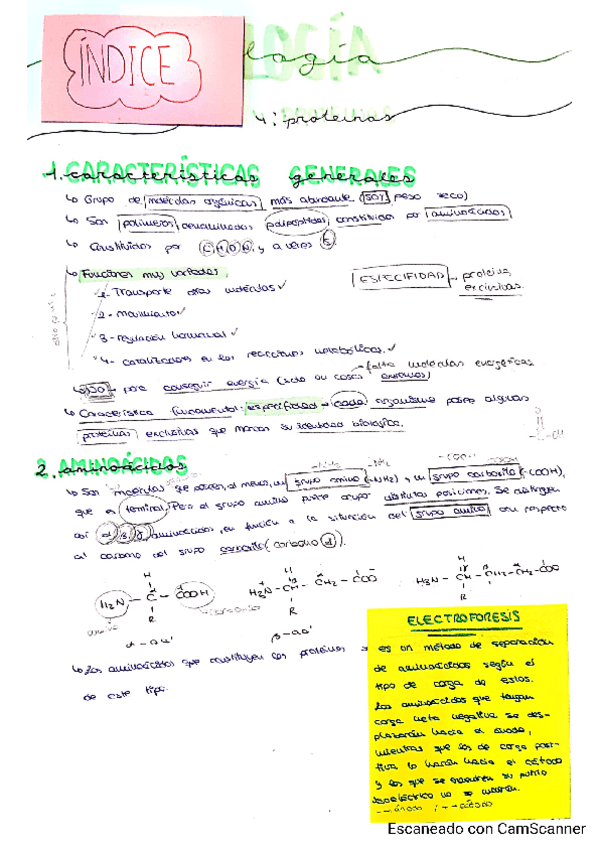 ÍNDICE
4: proteínas
1. CARACTERÍSTICAS GENERALES
↳ Grupo de moléculas orgánicas más abundante (50% peso seco)
↳ Son polímeros denominados polipéptidos constituidos por aminoácidos
↳ Constituidos por C H O N y a veces S.
↳ Funciones muy variadas:
ESPECIFIDAD → proteínas exclusivas.
1- Transporte otras moléculas ✓
2- Movimiento ✓
3- regulación hormonal ✓
4- catalizadores en las reacciones metabólicas. ✓
→ falta moléculas energéticas
para conseguir energía (solo en casos extremos)
↳ Característica fundamental: especifidad → cada organismo posee algunas
proteínas exclusivas que marcan su identidad biológica.
2. AMINOÁCIDOS
↳ Son moléculas que poseen, al menos, un grupo amino (-NH2) y un grupo carboxilo (-COOH),
que es terminal. Pero el grupo amino puede ocupar distintas posiciones. Se distinguen
así α, β, γ aminoácidos, en función a la situación del grupo amino con respecto
al carbono del grupo carboxilo (carbono α).
H
H2N - C - COOH
R
α-aa'
H2N - CH - CH2 - COO
R
β-aa'
H2N - CH - CH2 - CH2 - COO
R
↳ Los aminoácidos que constituyen las proteínas
de este tipo.
ELECTROFORESIS
es un método de separación
de aminoácidos según el
tipo de carga de estos.
Los aminoácidos que tengan
carga neta negativa se des-
plazarán hacia el ánodo,
mientras que los de carga posi-
tiva lo harán hacia el cátodo
y los que se encuentren su punto
isoeléctrico no se moverán.
- → ánodo / + → cátodo
Escaneado con CamScanner